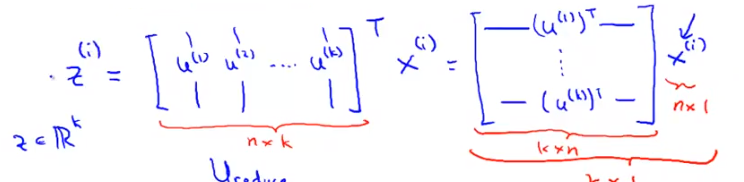 z^(i) = [ u^(1) u^(2) .... u^(k) ]^T x^(i) = [ — (u^(1))^T — ⋮ — (u^(k))^T — ] x^(i)
z ∈ ℝ^k
n × k
k × n
n × 1